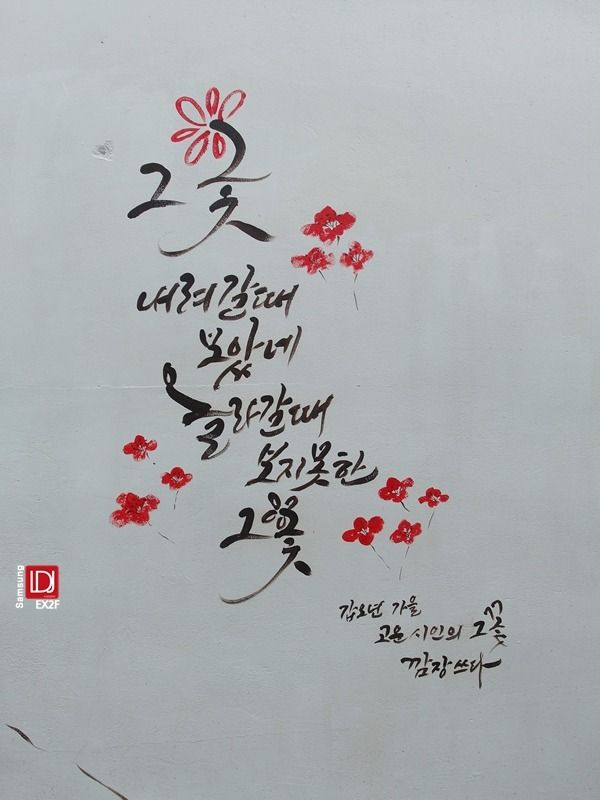 그 꽃
내려갈때
보았네
올라갈때
보지못한
그 꽃
갑오년 가을
고은 시인의 그 꽃
깜장 쓰다
Samsung
LDJ
EX2F